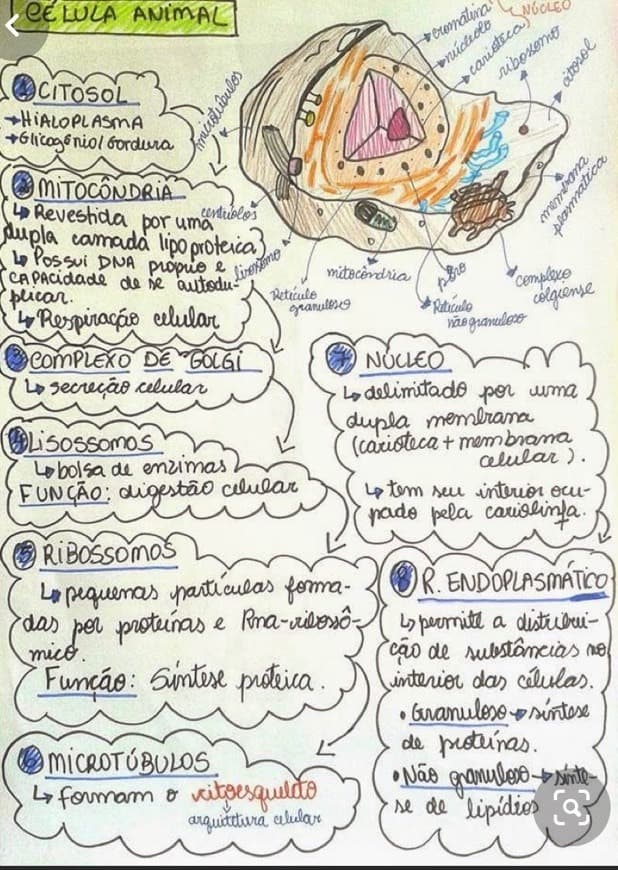 CÉLULA ANIMAL
NÚCLEO
cromatina
núcleolo
carioteca
ribossomo
citosol
microtúbulos
centríolos
lisossomo
Retículo
granuloso
mitocôndria
poro
Retículo
não granuloso
complexo
golgiense
membrana
plasmática
1 CITOSOL
→HIALOPLASMA
→Glicogênio/Gordura
2 MITOCÔNDRIA
↳ Revestida por uma
dupla camada lipoproteica
↳ POSSUI DNA PRÓPRIO E
CAPACIDADE DE SE AUTODU-
PLICAR.
↳ Respiração celular
3 COMPLEXO DE GOLGI
↳ secreção celular
4 LISOSSOMOS
↳ bolsa de enzimas
FUNÇÃO: digestão celular
5 RIBOSSOMOS
↳ pequenas partículas forma-
das por proteínas e Rna-ribossô-
mico.
Função: Síntese proteica.
6 MICROTÚBULOS
↳ formam o citoesqueleto
arquitetura celular
7 NÚCLEO
↳ delimitado por uma
dupla membrana
(carioteca + membrana
celular).
↳ tem seu interior ocu-
pado pela cariolinfa.
8 R. ENDOPLASMÁTICO
↳ permite a distribui-
ção de substâncias no
interior das células.
• Granuloso → síntese
de proteínas.
• Não granuloso → sínte-
se de lipídios